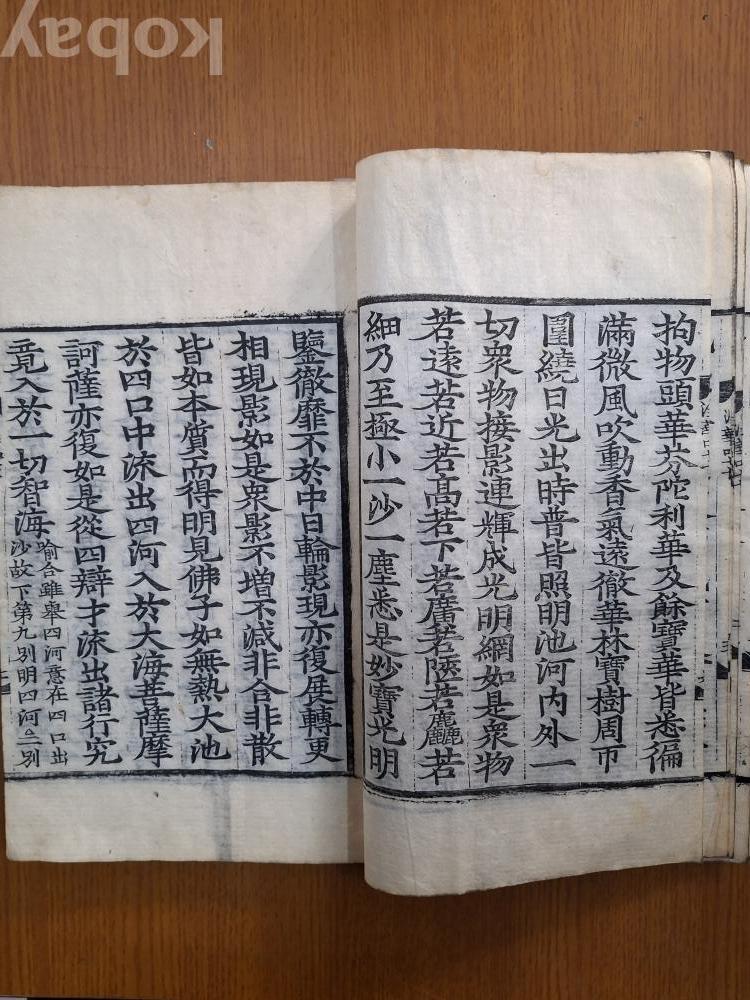 kobay
拍物頭華芬陀利華及餘寶華皆悉徧
滿微風吹動香氣遠徹華林寶樹周帀
圍繞日光出時普皆照明池河內外一
切衆物接影連輝成光明網如是衆物
若遠若近若高若下若廣若陿若麤若
細乃至極小一沙一塵悉是妙寶光明
鑒徹靡不於中日輪影現亦復展轉更
相現影如是衆影不增不減非合非散
皆如本質而得明見佛子如無熱大池
於四口中流出四河入於大海菩薩摩
訶薩亦復如是從四辯才流出諸行究
竟入於一切智海
喻合雖舉四河意在四口出
沙故下第九別明四河二別